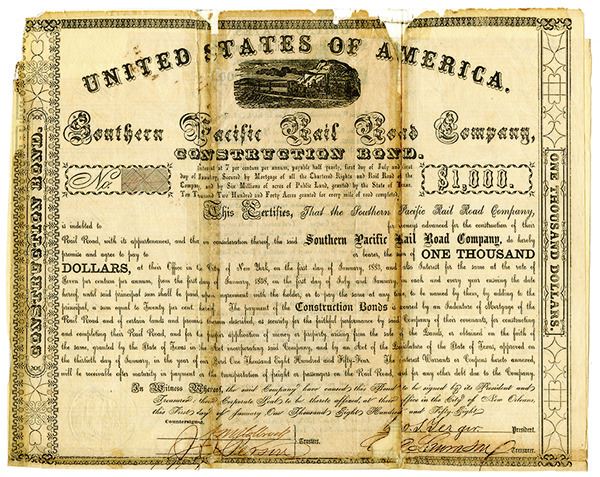 UNITED STATES OF AMERICA.
Southern Pacific Rail Road Company,
CONSTRUCTION BOND.
Interest at 7 per centum per annum, payable half yearly, first day of July and first
day of January, Secured by Mortgage of all the Chartered Rights and Rail Road of the
Company, and by Six Millions of acres of Public Land, granted by the State of Texas.
Ten Thousand Two Hundred and Forty Acres granted for every mile of road completed.
No.
$1,000.
This Certifies, That the Southern Pacific Rail Road Company,
is indebted to for moneys advanced for the construction of their
Rail Road, with its appurtenances, and that in consideration thereof, the said Southern Pacific Rail Road Company, do hereby
promise and agree to pay to or bearer, the sum of ONE THOUSAND
DOLLARS, at their Office in the City of New York, on the first day of January, 1883, and also Interest for the same at the rate of
Seven per centum per annum, from the first day of January, 1858, on the first day of July and January, in each and every year ensuing the date
hereof, until said principal sum shall be paid, upon agreement with the holder, or to pay the same at any time, to be named by them, by adding to the
Principal, a sum equal to Twenty per cent. thereof. The payment of the Construction Bonds is secured by an Indenture of Mortgage of the
Rail Road and of certain lands and premises therein described, as security for the faithful performance by said Company of their covenants, for constructing
and completing their Rail Road, and for the proper application of the property, arising from the sales of the Lands, obtained on the faith of
the same, granted by the State of Texas in the Act incorporating said Company, and by an Act of the Legislature of the State of Texas, approved on
the thirtieth day of January, in the year of our Lord One Thousand Eight Hundred and Fifty-Four. The Interest Warrants or Coupons hereto annexed,
will be receivable after maturity in payment for the transportation of freight or passengers on the Rail Road, and for any other debt due to the Company.
In Witness Whereof, the said Company have caused this Bond to be signed by its President and
Treasurer, and their Corporate Seal to be thereto affixed, at their office in the City of New Orleans,
this First day of January One Thousand Eight Hundred and Fifty Eight
Countersigned,
President.
Trustees.
Treasurer.
CONSTRUCTION BOND.
ONE THOUSAND DOLLARS.